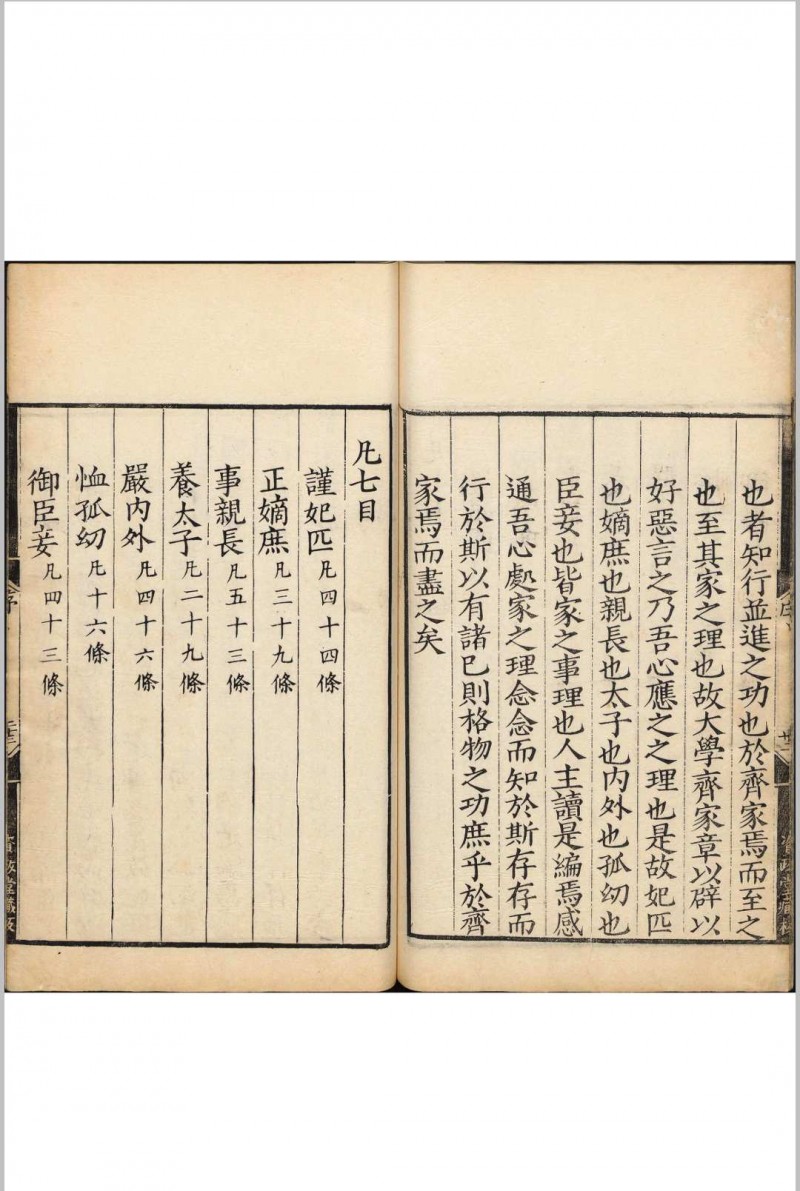 也者知行並進之功也於齊家焉而至之
也至其家之理也故大學齊家章以辟以
好惡言之乃吾心應之之理也是故妃匹
也嫡庶也親長也太子也內外也孤幼也
臣妾也皆家之事理也人主讀是編焉感
通吾心處家之理念念而知於斯存存而
行於斯以有諸已則格物之功庶乎於齊
家焉而盡之矣
凡七目
謹妃匹凡四十四條
正嫡庶凡三十九條
事親長凡五十三條
養太子凡二十九條
嚴內外凡四十六條
恤孤幼凡十六條
御臣妾凡四十三條